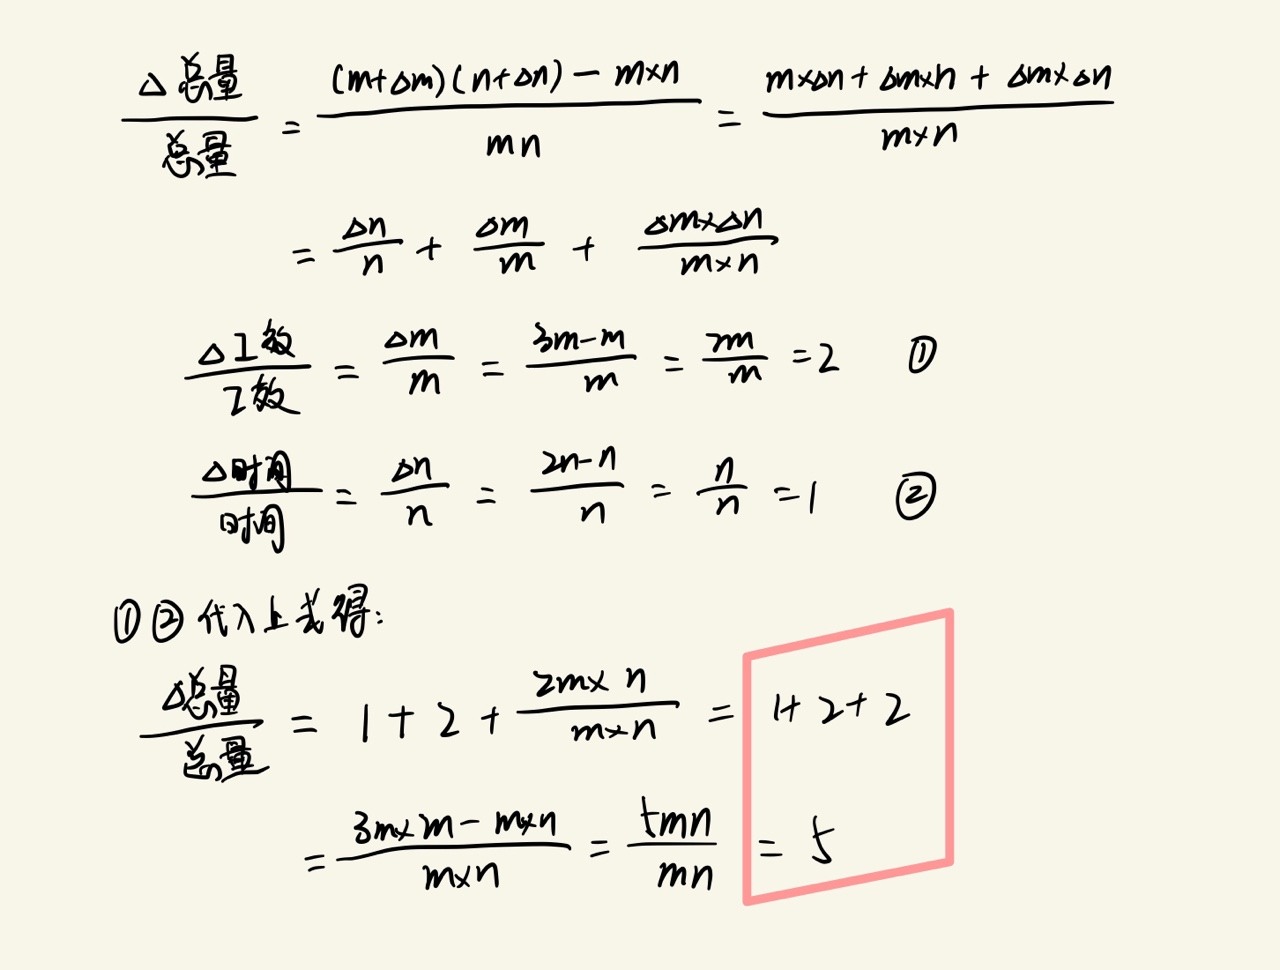 Δ总量/总量 = ((m+Δm)(n+Δn) - m×n)/mn = (m×Δn + Δm×n + Δm×Δn)/(m×n)
= Δn/n + Δm/m + (Δm×Δn)/(m×n)
Δ工效/工效 = Δm/m = (3m-m)/m = 2m/m = 2 ①
Δ时间/时间 = Δn/n = (2n-n)/n = n/n = 1 ②
①②代入上式得:
Δ总量/总量 = 1 + 2 + (2m×n)/(m×n) = 1+2+2
= (3m×2n - m×n)/(m×n) = 5mn/mn = 5